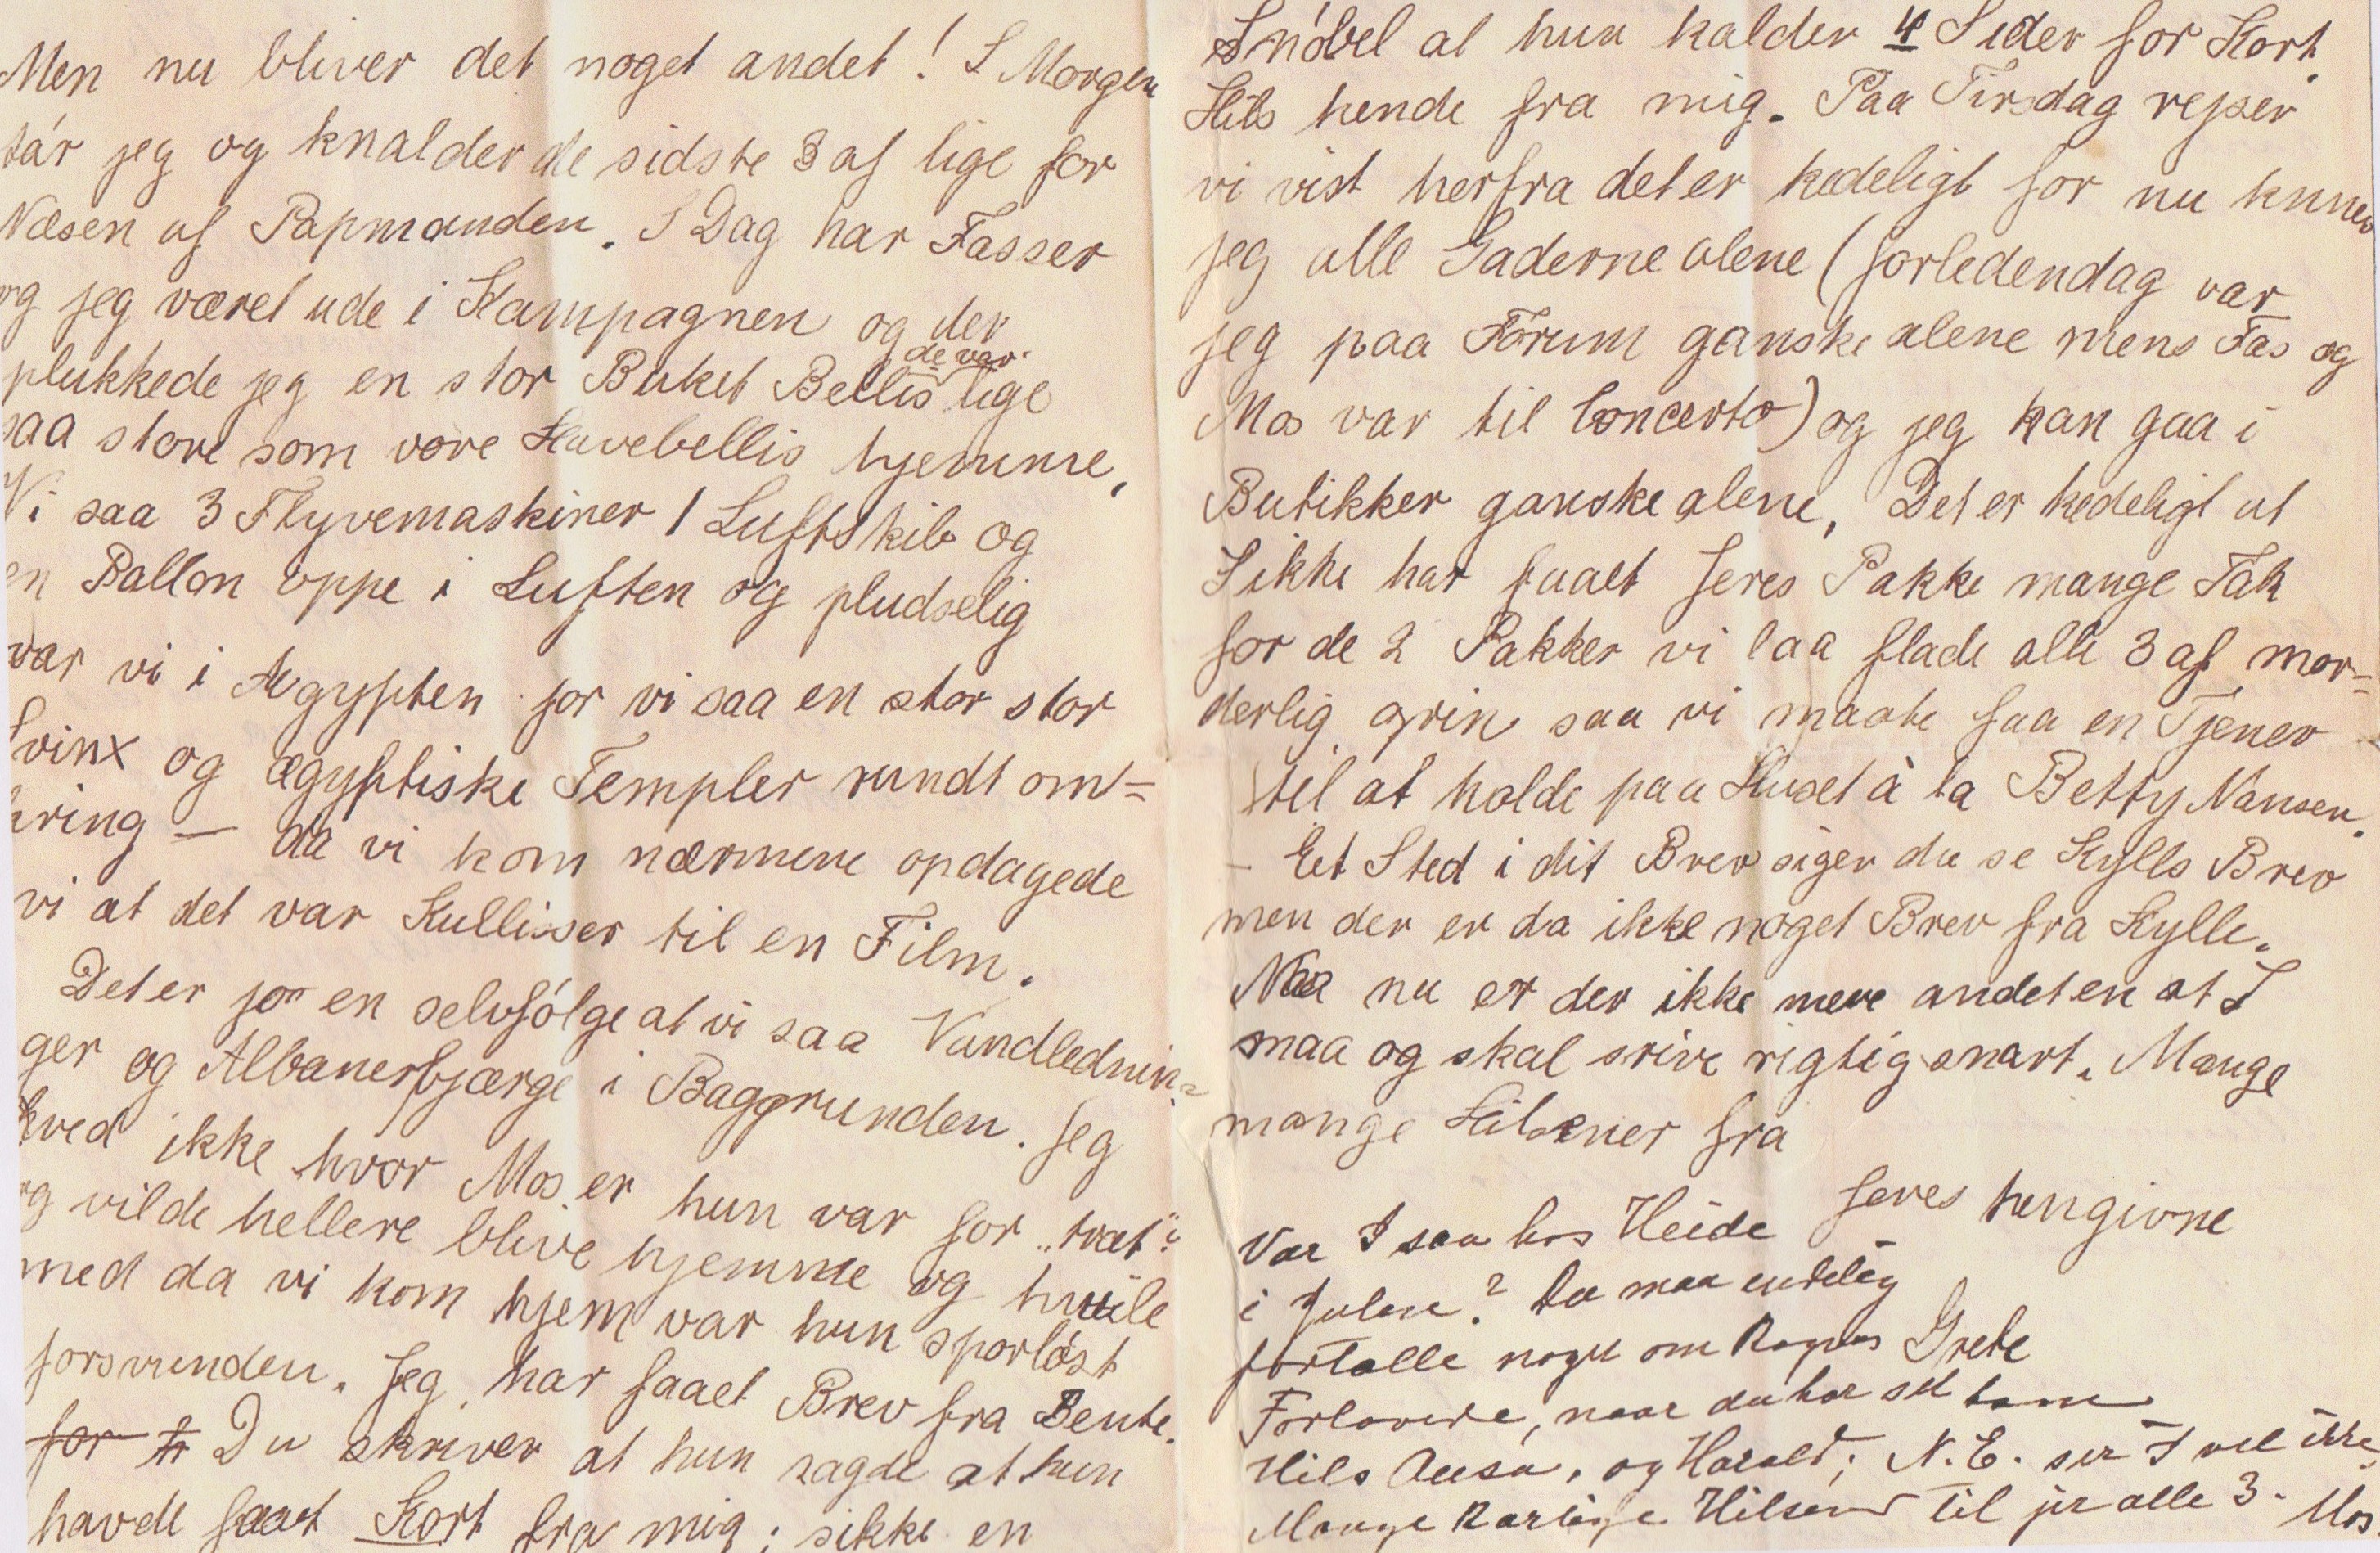 Men nu bliver det noget andet! I Morgen
tár jeg og knalder de sidste 3 af lige for
Næsen af Papmanden. I Dag har Fasser
og jeg været ude i Kampagnen og der
plukkede jeg en stor Buket Bellis de var lige
saa store som vore Havebellis hjemme,
Vi saa 3 Flyvemaskiner 1 Luftskib og
en Ballon oppe i Luften og pludselig
var vi i Ægypten for vi saa en stor stor
Svinx og ægyptiske Templer rundt om=
kring — da vi kom nærmere opdagede
vi at det var Kullisser til en Film.
Det er jo en selvfólge at vi saa Vandlednin=
ger og Albanerbjærge i Baggrunden. Jeg
ved ikke hvor Mos er hun var for „træt"
og vilde hellere blive hjemme og hvile
med da vi kom hjem var hun sporlóst
forsvunden. Jeg har faaet Brev fra Bente.
for h Du skriver at hun sagde at hun
havde faaet Kort fra mig; sikke en
Snóbel at hun kalder 4 Sider for Kort.
Hils hende fra mig. Paa Tirsdag rejser
vi vist herfra det er kedeligt for nu kuner
jeg alle Gaderne alene (forledendag var
jeg paa Forum ganske alene mens Fas og
Mos var til Concerto) og jeg kan gaa i
Butikker ganske alene, Det er kedeligt at
I ikke har faaet Jeres Pakke mange Tak
for de 2 Pakker vi laa flade alle 3 af mor=
derlig grin saa vi maate faa en Tjener
til at holde paa Huset à la Betty Nansen.
– Eet Sted i dit Brev siger du se Kylls Brev
men der er da ikke noget Brev fra Kylle.
Naa nu er der ikke mere andet en at I
maa og skal srive rigtig snart. Mange
mange Hilsener fra
Jeres hengivne
Grete
Var I saa hos Heide
i Julen? Du maa endelig
fortælle noget om Ragnas
Forlovede, naar du har set ham
Hils , og Harald; N.E. ser I vel ikke.
Mange kærlige Hilsener til jer alle 3. Mos.